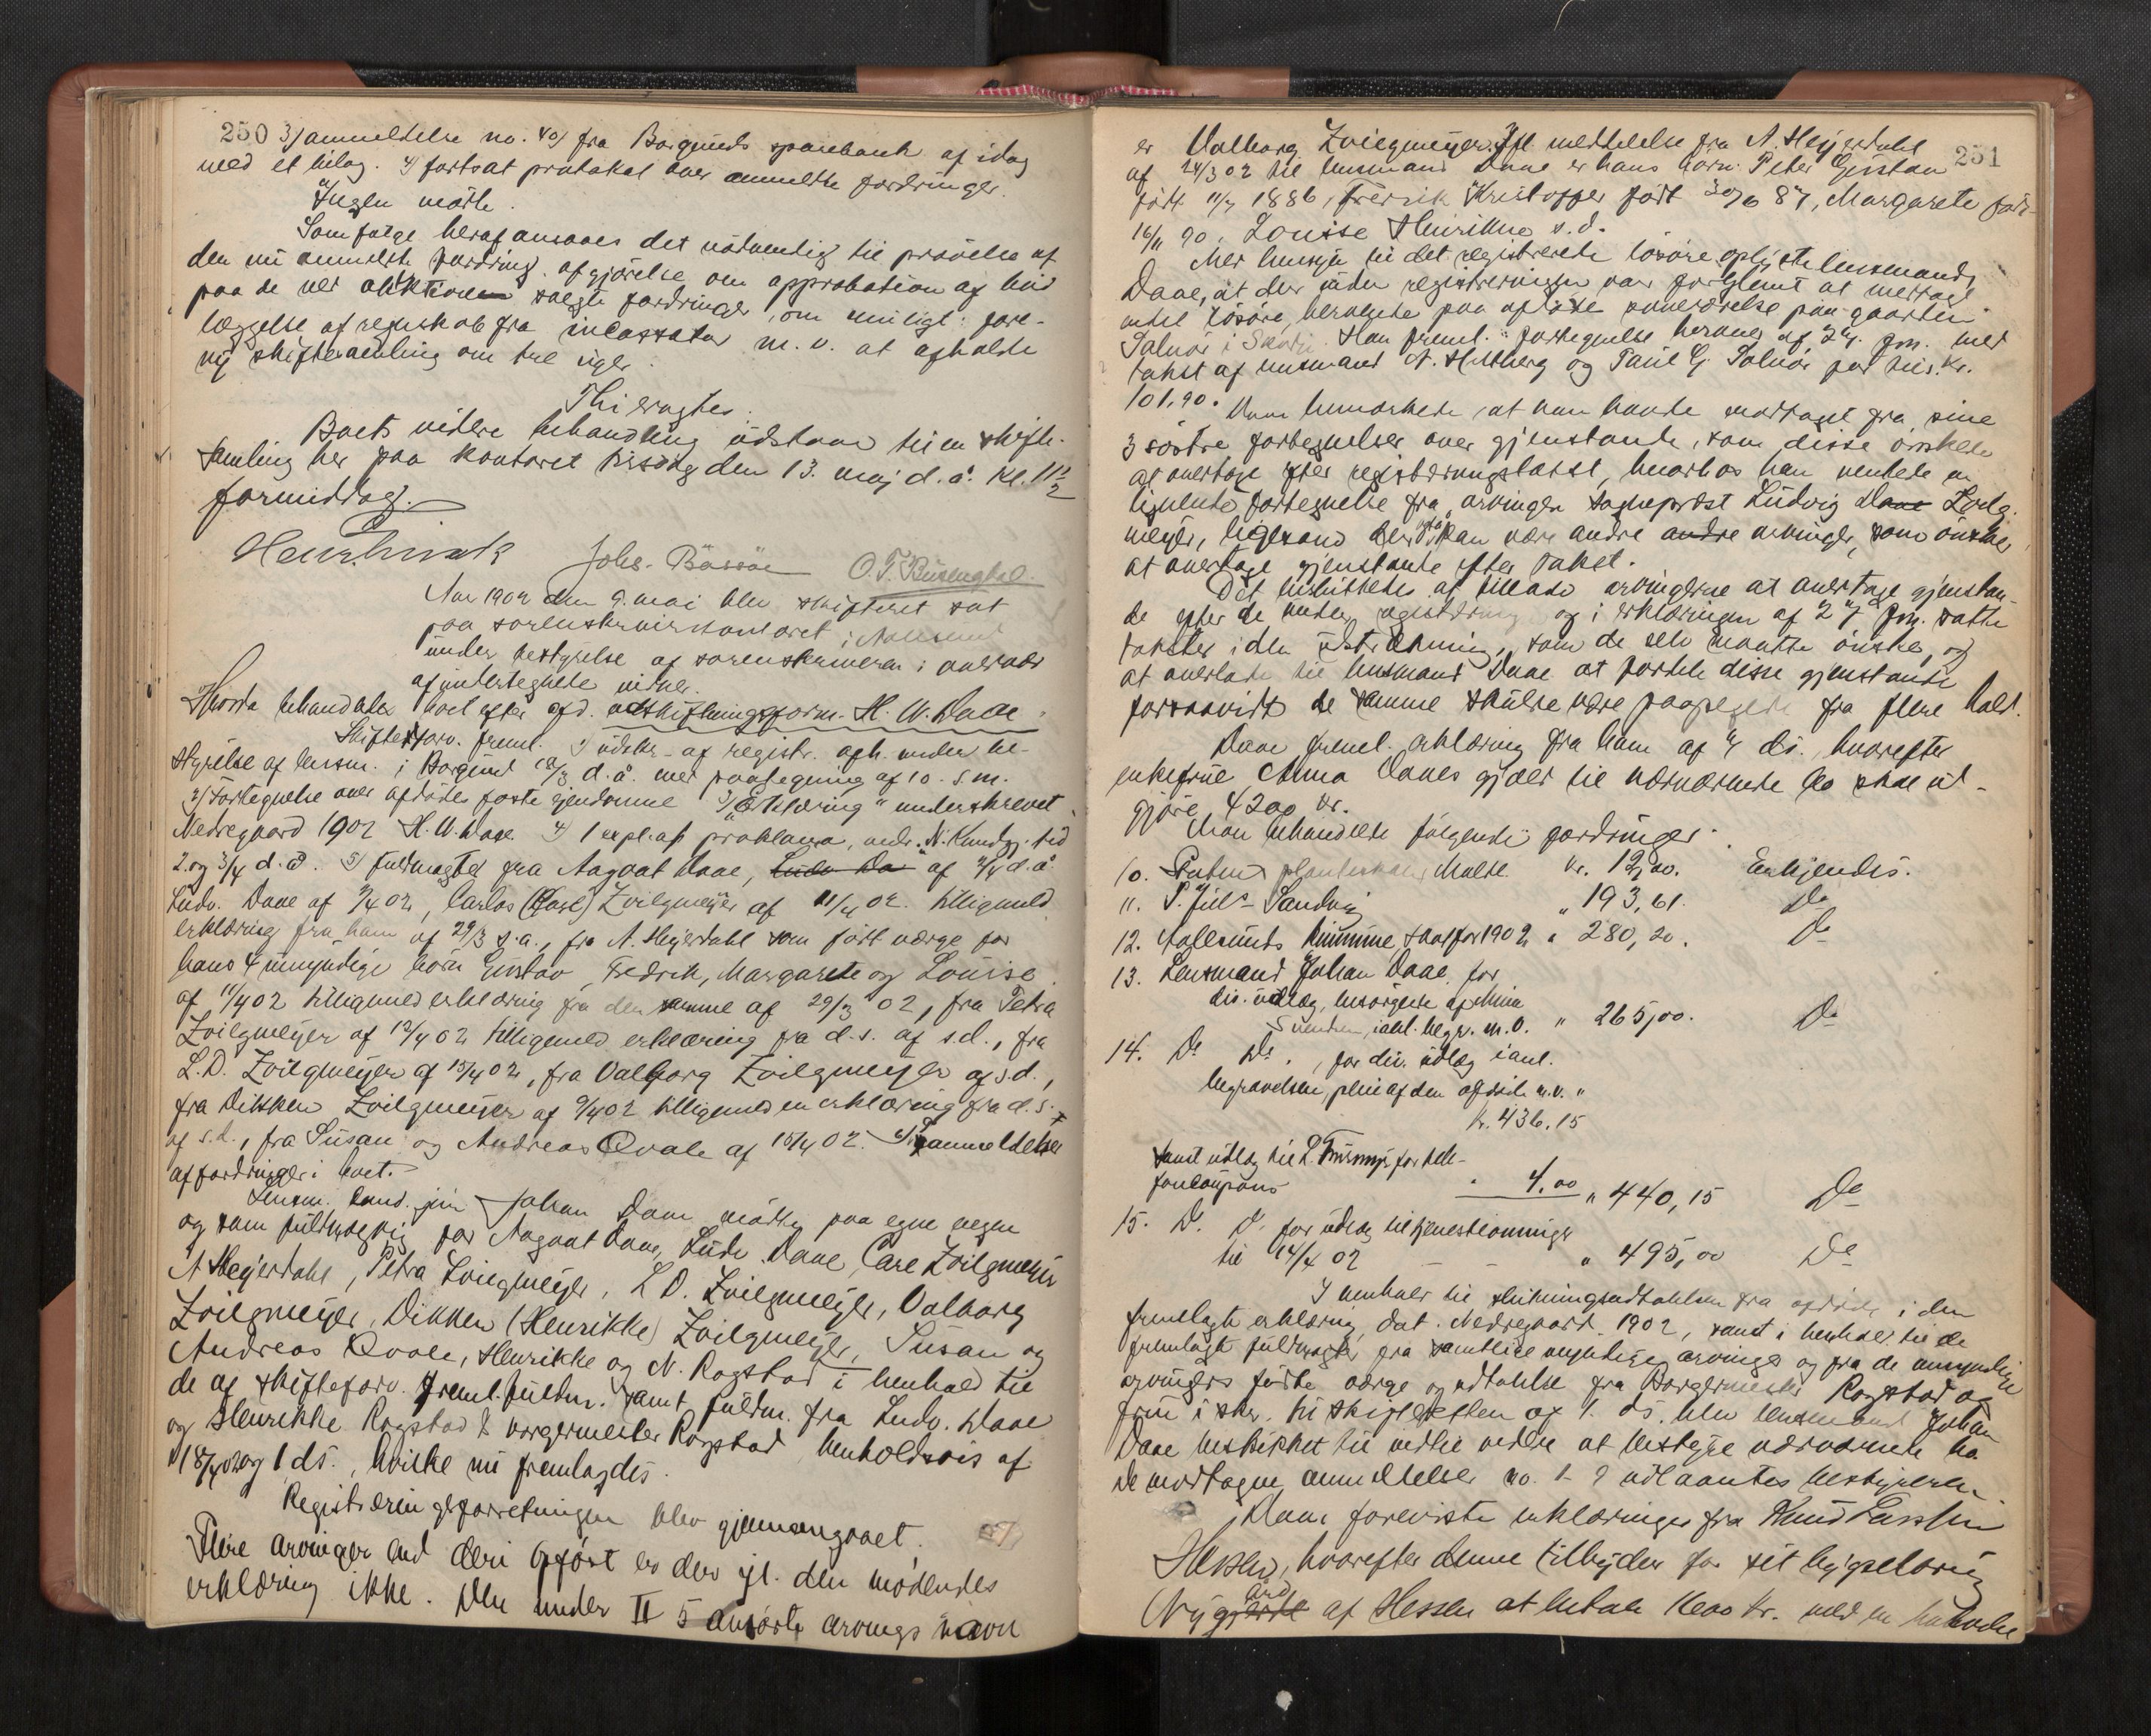 250 3) anmeldelse no. 40) fra Borgunds sparebank af idag
med et bilag. 4) fortsat protokol over anmeldte fordringer.
Ingen mødte.
Som følge heraf ansaaes det nødvendig til prøvelse af
den nu anmeldte fordring, afgjørelse om approbation af bud
paa de ved auktionen solgte fordringer, om muligt: fore-
læggelse af regnskab fra incassator m. v. at afholde
ny skiftesamling om tre uger.
Thi eragtes:
Boets videre behandling udstaar til en skifte-
samling her paa kontoret tirsdag den 13. maj d. å. kl. 11½
formiddag.
Johs. Bösöe
Aar 1902 den 9. mai blev skifteret sat
paa sorenskriverkontoret i Aalesund
under bestyrelse af sorenskriveren i overvær
af undertegnede vidner.
Hvorda behandles boet efter afd. udskiftningsform. H. W. Daae.
Skifteforv. freml. 1) udskr. af registr. afh. under be-
styrelse af lensm. i Borgund 18/3 d. å. med paategning af 10. s. m.
2) Fortegnelse over afdødes faste eiendomme 3) "Erklæring" underskrevet
Nedregaard 1902 H. W. Daae 4) 1 expl. af proklama, indr. N. Kundgj. tid
2. og 3/4 d. å. 5) fuldmagter fra Aagaat Daae, Ludv Da af 2/4 d. å.
Ludv. Daae af 7/4 02, Carlos (Carl) Zwilgmeyer af 11/4 02. tilligemed
erklæring fra ham af 29/3 s. a., fra A. Heyerdahl som født værge for
hans 4 umyndige børn Gustav, Fredrik, Margarete og Louise
af 11/4 02 tilligemed erklæring fra den samme af 29/3 02, fra Petra
Zwilgmeyer af 12/4 02 tilligemed erklæring fra d. s. af s. d., fra
L. D. Zwilgmeyer af 15/4 02, fra Valborg Zwilgmeyer af s. d.,
fra Dikken Zwilgmeyer af 9/4 02 tilligemed en erklæring fra d. s.
af s. d., fra Susan og Andreas Qvale af 15/4 02. anmeldelser
af fordringer i boet.
Lensm. cand. jur Johan Daae mødte paa egne vegne
og som fuldmægtig for Aagaat Daae, Ludv. Daae, Carl Zwilgmeyer
A Heyerdahl, Petra Zwilgmeyer, L D. Zwilgmeyer, Valborg
Zwilgmeyer, Dikken (Henrikke) Zwilgmeyer, Susan og
Andreas Qvale, Henrikke og N. Rogstad i henhold til
de af skifteforv. freml. fuldm. samt fuldm. fra Ludv. Daae
og Henrikke Rogstad & borgermester Rogstad henholdsvis af
18/4 02 og 1 ds., hvilke nu fremlagdes.
Registreringsforretningen blev gjennemgaaet.
Flere arvinger end deri opført er der ifl. den mødendes
erklæring ikke. Den under II 5 anførte arvings navn
251
er Valborg Zwilgmeyer. Ifl. meddelelse fra A. Heyerdahl
af 24/3 02 til lensmand Daae er hans børn: Peter Gustav
født 11/7 1886, Fredrik Kristoffer født 20/6 87, Margarete født
16/11 90, Louise Henrikke s. d.
Med hensyn til det registrerede løsøre oplyste lensmand
Daae, at der under registreringen var forglemt at medtage
endel løsøre, beroende paa afdøde enværelse paa gaarden
Solnør i Skodje. Han freml. fortegnelse herover af 2/4. fm. med
takst af lensmand N. Hellberg og Paul G. Solnør paa tils. kr.
101,90.
Daae bemærkede, at han havde modtaget fra sine
3 søstre fortegnelser over gjenstande, som disse ønskede
at overtage efter registreringstakst, hvorhos han ventede en
lignende fortegnelse fra arvingen sogneprest Ludvig Daae Zwilg-
meyer, ligesom der ogsaa kan være andre andre arvinger, som ønsker
at overtage gjenstande efter takst.
Det besluttedes at tillade arvingerne at overtage gjenstan-
de efter de under registrering og i erklæringen af 2/4 fm. satte
takster i den udstrækning, som de selv maatte ønske, og
at overlade til lensmand Daae at fordele disse gjenstande
forsaavidt de samme skulde være paapegede fra flere hold.
Daae freml. erklæring fra ham af 4 ds. hvorefter
enkefrue Anna Daaes gjæld til nærværende bo skal ud-
gjøre 4200 kr.
Man behandlede følgende fordringer:
10. planteskole, Molde kr. 12,00. Erkjendes.
11. P. Jul. Sandvig " 193,61. Do
12. Aalesunds kommune, skat for 1902 " 280,20. Do
13. Lensmand Johan Daae, for
div. udlæg, besørgede af Mina
Svendsen, ianl. begr. m. v. " 265,00. Do
14. Do Do, for div. udlæg i anl.
begravelsen, pleie af den afdøde m. v. "
kr. 436.15
samt udlæg til for tele-
foncoupons " 4.00 " 440,15 Do
15. D. D. for udlæg til tjenestlønninger
til 14/4 02 " 495,00 Do
I henhold til slutningsudtalelsen fra afdøde i den
fremlagte erklæring, dat. Nedregaard 1902, samt i henhold til de
fremlagte fuldmagter fra samtlige myndige arvinger og fra de umyndige
arvingers fødte værge og udtalelse fra Borgermester Rogstad og
frue i skr. til skifteretten af 1. ds. blev lensmand Johan
Daae beskikket til indtil videre at bestyre nærværende bo.
De modtagne anmeldelser no. 1-9 udlaantes bestyreren.
Daae foreviste erklæringer fra Knud Larssen
Hessen, hvorefter denne tilbyder for sit bygselbrug
Nygjerdet ard af Hessen at betale 1600 kr. med en halvdel